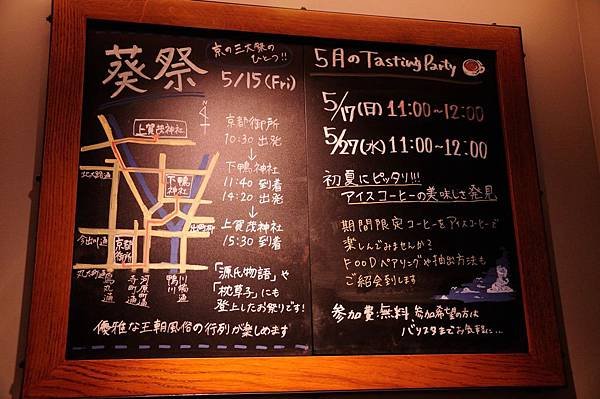 葵祭
京の三大祭の
ひとつ!!
5/15(Fri)
N
上賀茂神社
下鴨
神社
北大路通
今出川通
京都
御所
丸太町通
烏丸通
寺町
河原町通
鴨川
川端通
京都御所
10:30 出発
↓
下鴨神社
11:40 到着
14:20 出発
↓
上賀茂神社
15:30 到着
「源氏物語」や
「枕草子」にも
登上したお祭りです!
優雅な王朝風俗の行列が楽しめます
5月のTasting Party
5/17(日) 11:00~12:00
5/27(水) 11:00~12:00
初夏にピッタリ!!!
アイスコーヒーの美味しさ発見
期間限定コーヒーをアイスコーヒーで
楽しんでみませんか?
FOODペアリングや抽出方法も
ご紹介到します
参加費:無料 参加希望の方は
バリスタまでお気軽に...